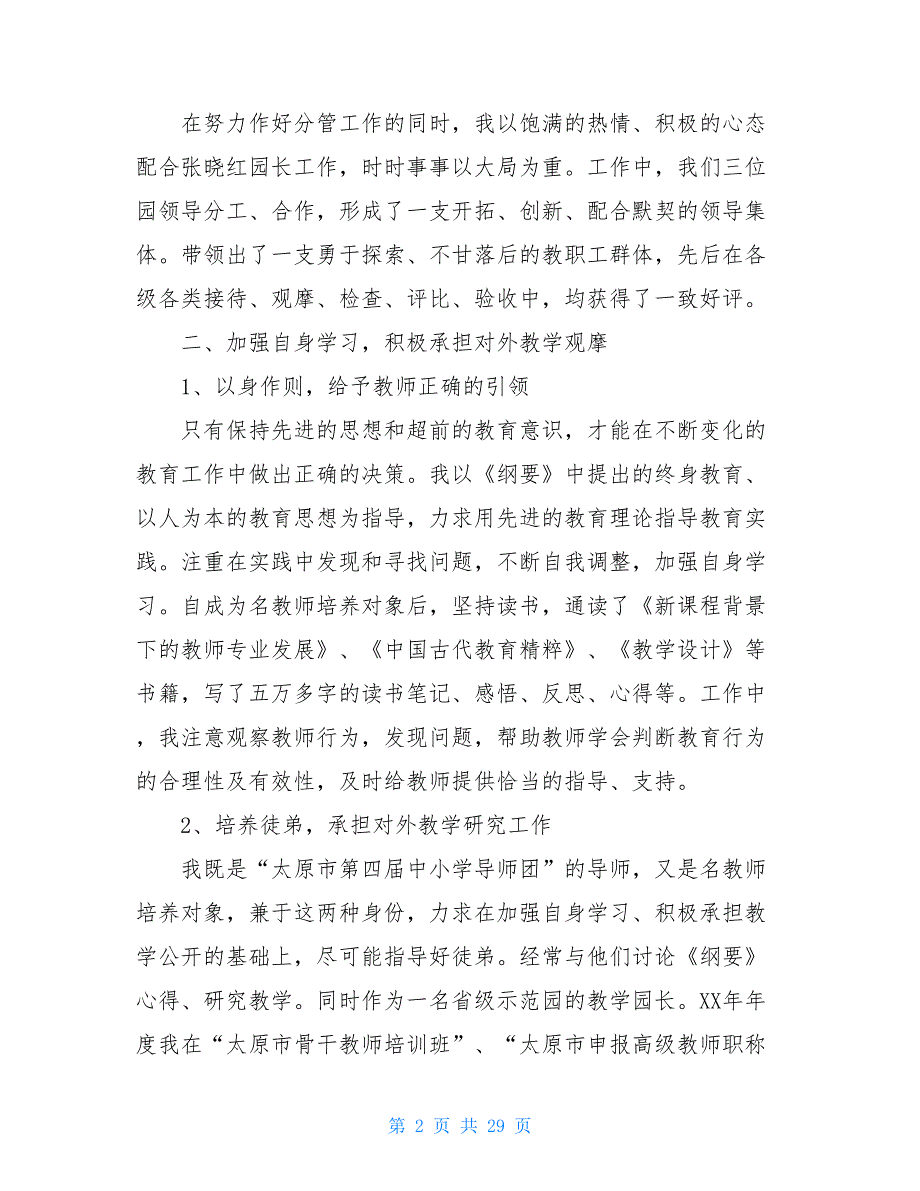 在努力作好分管工作的同时，我以饱满的热情、积极的心态
配合张晓红园长工作，时时事事以大局为重。工作中，我们三位
园领导分工、合作，形成了一支开拓、创新、配合默契的领导集
体。带领出了一支勇于探索、不甘落后的教职工群体，先后在各
级各类接待、观摩、检查、评比、验收中，均获得了一致好评。
二、加强自身学习，积极承担对外教学观摩
1、以身作则，给予教师正确的引领
只有保持先进的思想和超前的教育意识，才能在不断变化的
教育工作中做出正确的决策。我以《纲要》中提出的终身教育、
以人为本的教育思想为指导，力求用先进的教育理论指导教育实
践。注重在实践中发现和寻找问题，不断自我调整，加强自身学
习。自成为名教师培养对象后，坚持读书，通读了《新课程背景
下的教师专业发展》、《中国古代教育精粹》、《教学设计》等
书籍，写了五万多字的读书笔记、感悟、反思、心得等。工作中
，我注意观察教师行为，发现问题，帮助教师学会判断教育行为
的合理性及有效性，及时给教师提供恰当的指导、支持。
2、培养徒弟，承担对外教学研究工作
我既是“太原市第四届中小学导师团”的导师，又是名教师
培养对象，兼于这两种身份，力求在加强自身学习、积极承担教
学公开的基础上，尽可能指导好徒弟。经常与他们讨论《纲要》
心得、研究教学。同时作为一名省级示范园的教学园长。XX年年
度我在“太原市骨干教师培训班”、“太原市申报高级教师职称
第 2 页 共 29 页